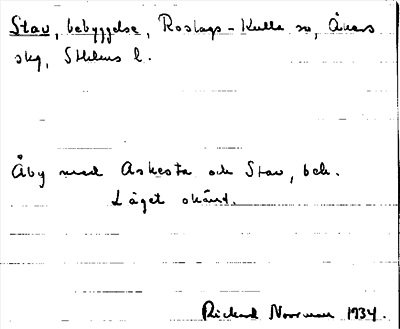 Stav, bebyggelse, Roslags-Kulla sn, Åkers
skg, Sthlms l.
Åby med Askesta och Stav, beb.
Läget okänt.
Rickard Norrman 1934.